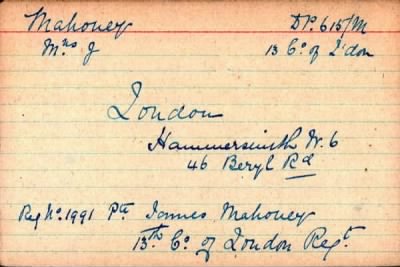 Mahoney DP. 615/M
Mrs J 13 Co. of L'don
London
Hammersmith W. 6
46 Beryl Rd
Reg No. 1991 Pte James Mahoney
13th Co. of London Regt.